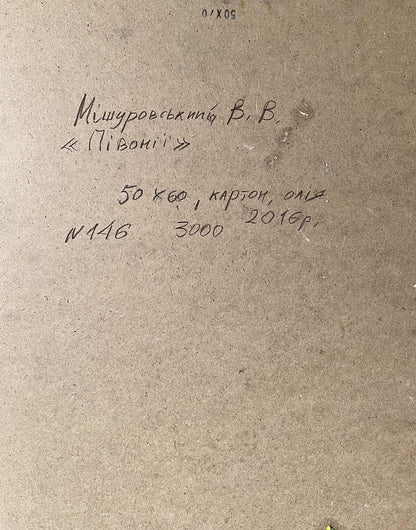 50х70
Мішуровський В. В.
« Півонії »
50 х 60, картон, олія
2016р.
N 146 3000